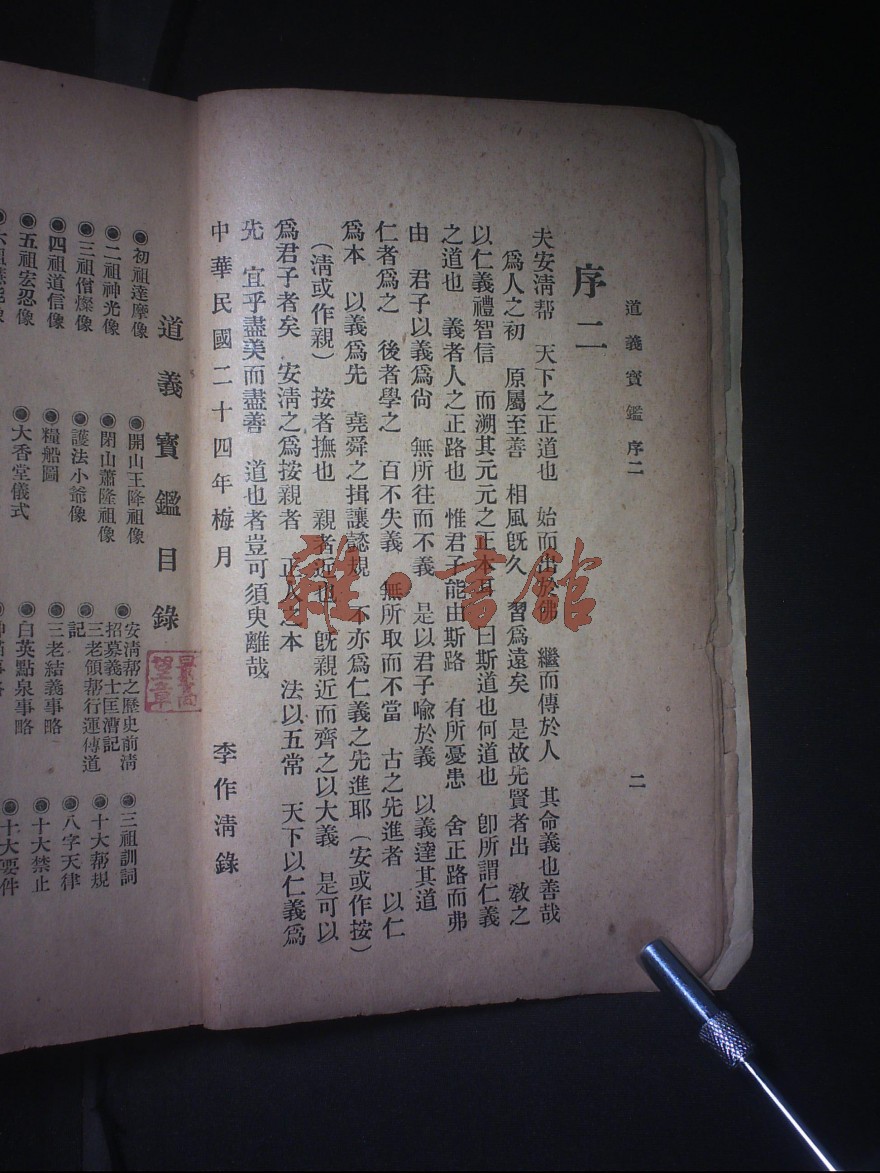 道義寶鑑 序二
二
序二
夫安淸帮 天下之正道也 始而出於佛 繼而傳於人 其命義也善哉
爲人之初 原屬至善 相風旣久 習爲遠矣 是故先賢者出 敎之
以仁義禮智信 而溯其元元之正本耳 曰斯道也何道也 卽所謂仁義
之道也 義者人之正路也 惟君子能由斯路 有所憂患 舍正路而弗
由 君子以義爲尙 無所往而不義 是以君子喩於義 以義達其道
仁者爲之 後者學之 百不失義 無所取而不當 古之先進者 以仁
爲本 以義爲先 堯舜之揖讓懿規 不亦爲仁義之先進耶（安或作按）
（淸或作親） 按者撫也 親者近也 旣親近而齊之以大義 是可以
爲君子者矣 安淸之爲按親者 正人之本 法以五常 天下以仁義爲
先 宜乎盡美而盡善 道也者豈可須臾離哉
中華民國二十四年梅月 李作淸錄
雜·書館
道義寶鑑目錄
◉初祖達摩像 ◉開山王降祖像 ◉安淸帮之歷史前淸招募義士匡漕記 ◉三祖訓詞
◉二祖神光像 ◉閉山蕭隆祖像 ◉三老領帮行運傳道記 ◉十大帮規
◉三祖僧燦像 ◉護法小爺像 ◉三老結義事略 ◉八字天律
◉四祖道信像 ◉糧船圖 ◉白英點泉事略 ◉十大禁止
◉五祖宏忍像 ◉大香堂儀式 ◉十大要件